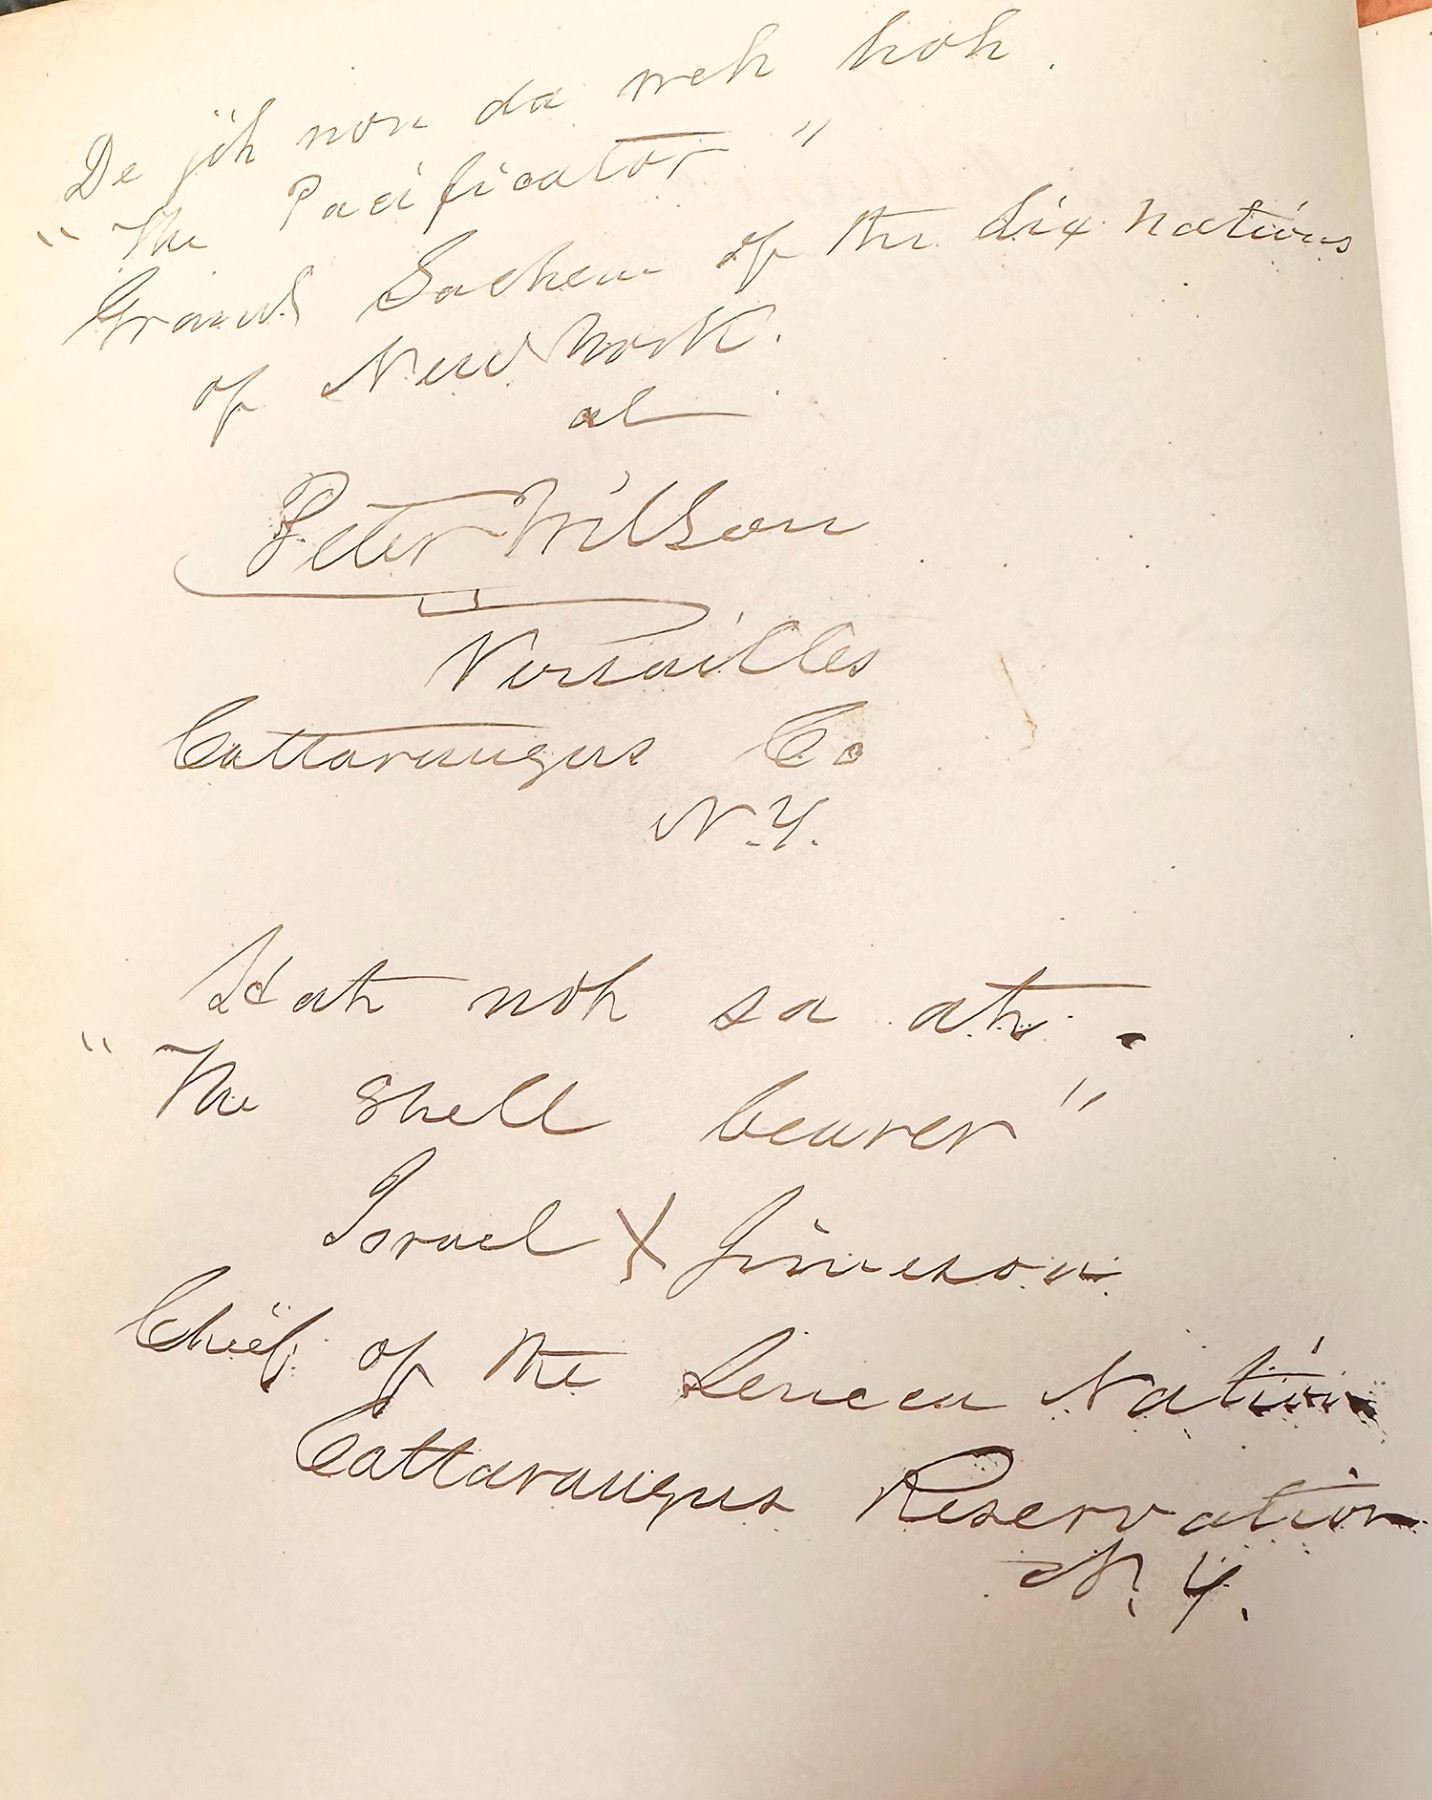 De jih non da weh hoh.
"The Pacificator"
Grand Sachem of the Six Nations
of New York.
al
Peter Wilson
Versailles
Cattaraugus Co
N.Y.
Hah noh sa ah.
"The Shell bearer"
Israel X Jimeson
Chief of the Seneca Nation
Cattaraugus Reservation
N. Y.